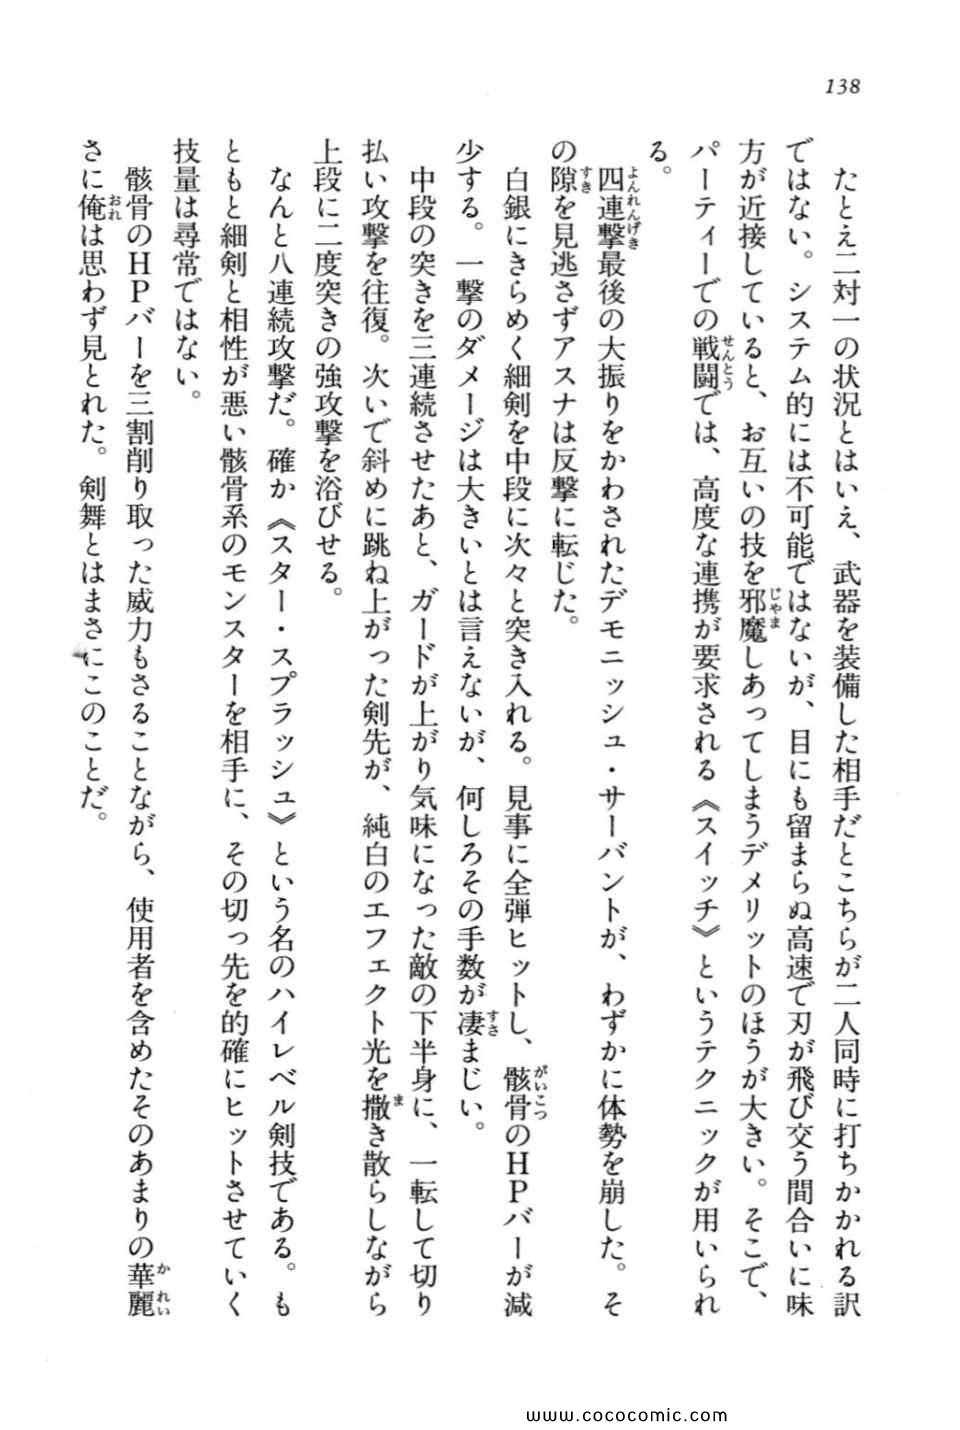 138
たとえ二対一の状況とはいえ、武器を装備した相手だとこちらが二人同時に打ちかかれる訳
ではない。システム的には不可能ではないが、目にも留まらぬ高速で刃が飛び交う間合いに味
方が近接していると、お互いの技を邪魔しあってしまうデメリットのほうが大きい。そこで、
パーティーでの戦闘では、高度な連携が要求される《スイッチ》というテクニックが用いられ
る。
四連撃最後の大振りをかわされたデモニッシュ・サーバントが、わずかに体勢を崩した。そ
の隙を見逃さずアスナは反撃に転じた。
白銀にきらめく細剣を中段に次々と突き入れる。見事に全弾ヒットし、骸骨のHPバーが減
少する。一撃のダメージは大きいとは言えないが、何しろその手数が凄まじい。
中段の突きを三連続させたあと、ガードが上がり気味になった敵の下半身に、一転して切り
払い攻撃を往復。次いで斜めに跳ね上がった剣先が、純白のエフェクト光を撒き散らしながら
上段に二度突きの強攻撃を浴びせる。
なんと八連続攻撃だ。確か《スター・スプラッシュ》という名のハイレベル剣技である。も
ともと細剣と相性が悪い骸骨系のモンスターを相手に、その切っ先を的確にヒットさせていく
技量は尋常ではない。
骸骨のHPバーを三割削り取った威力もさることながら、使用者を含めたそのあまりの華麗
さに俺は思わず見とれた。剣舞とはまさにこのことだ。
www.cococomic.com